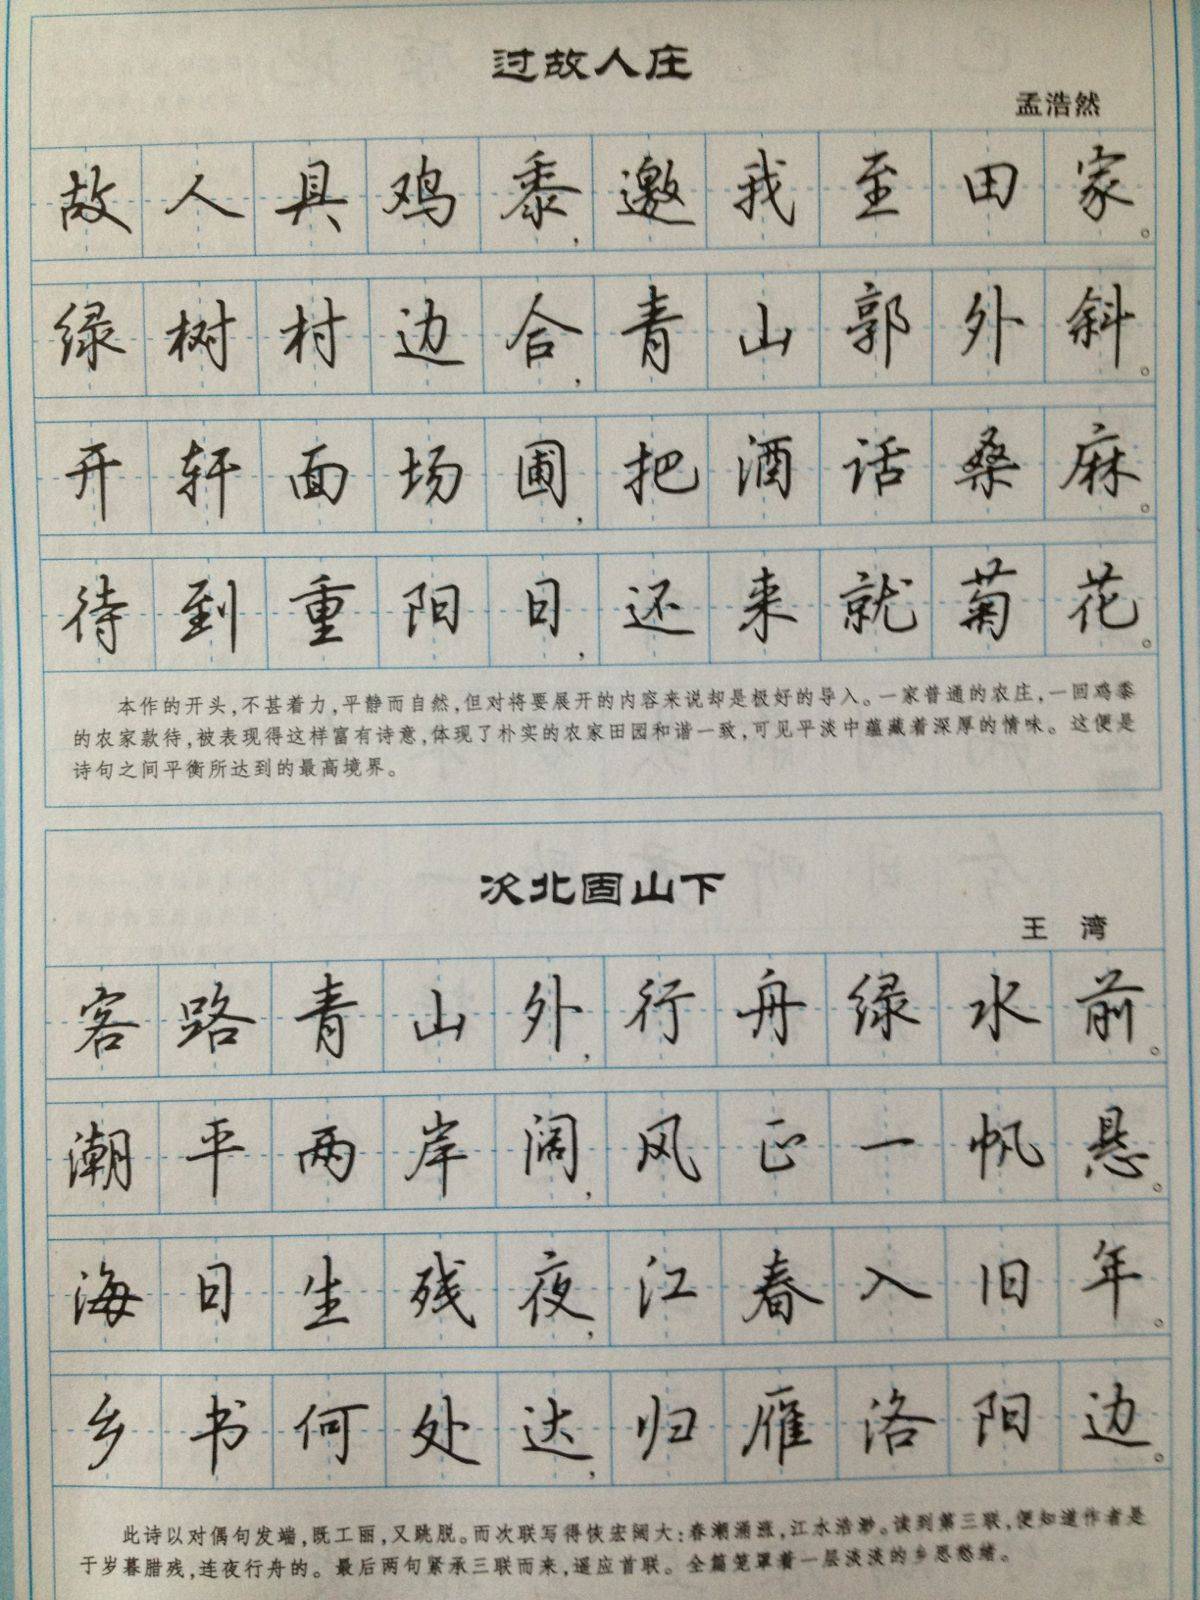 过故人庄
孟浩然
故人具鸡黍,邀我至田家。
绿树村边合,青山郭外斜。
开轩面场圃,把酒话桑麻。
待到重阳日,还来就菊花。
本作的开头,不甚着力,平静而自然,但对将要展开的内容来说却是极好的导入。一家普通的农庄,一回鸡黍
的农家款待,被表现得这样富有诗意,体现了朴实的农家田园和谐一致,可见平淡中蕴藏着深厚的情味。这便是
诗句之间平衡所达到的最高境界。
次北固山下
王 湾
客路青山外,行舟绿水前。
潮平两岸阔,风正一帆悬。
海日生残夜,江春入旧年。
乡书何处达,归雁洛阳边。
此诗以对偶句发端,既工丽,又跳脱。而次联写得恢宏阔大:春潮涌涨,江水浩渺。读到第三联,便知道作者是
于岁暮腊残,连夜行舟的。最后两句紧承三联而来,遥应首联。全篇笼罩着一层淡淡的乡思愁绪。